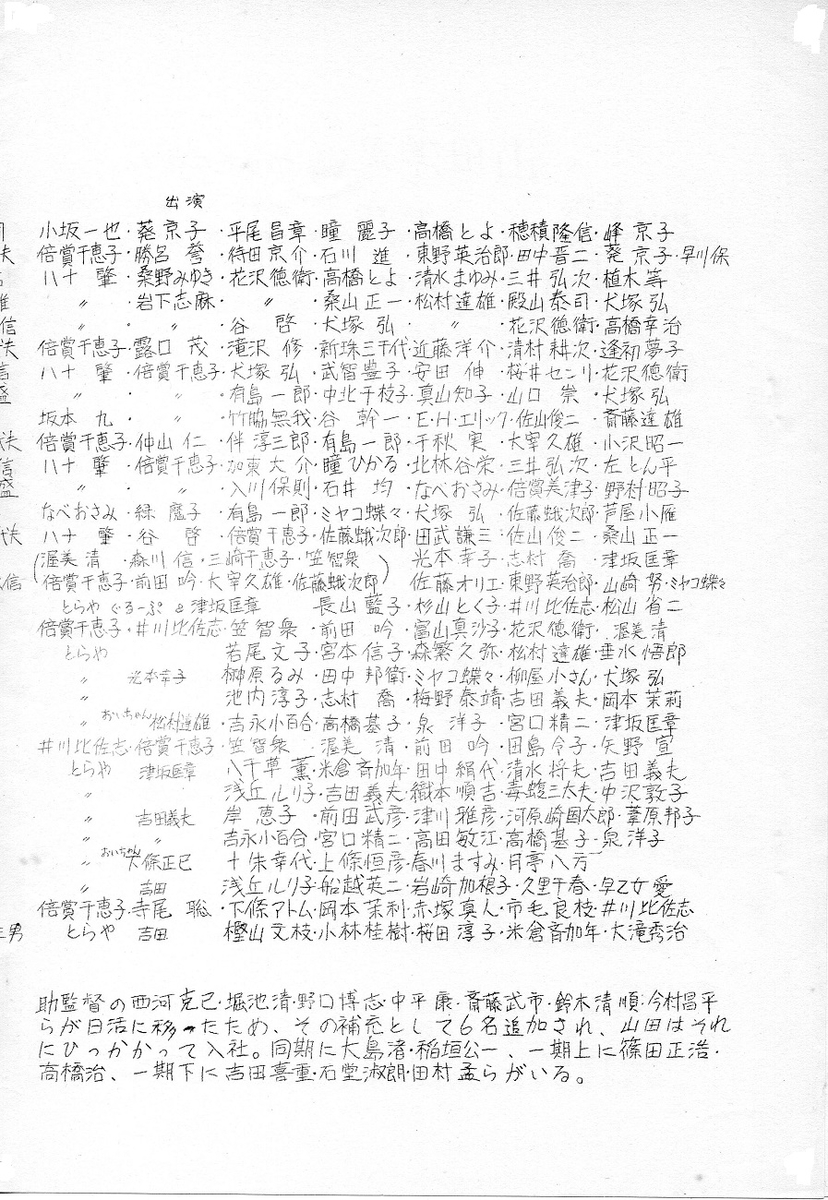 出演
小坂一也・葵京子・平尾昌章・瞳麗子・高橋とよ・穂積隆信・峰京子
夫 倍賞千恵子・勝呂誉・待田京介・石川進・東野英治郎・田中晋二・葵京子・早川保
八十肇・桑野みゆき・花沢徳衛・高橋とよ・清水まゆみ・三井弘次・植木等
雄 〃 ・岩下志麻・ 〃 ・桑山正一・松村達雄・殿山泰司・犬塚弘
信 〃 ・ 〃 ・谷啓・犬塚弘・ 〃 ・花沢徳衛・高橋幸治
夫 倍賞千恵子・露口茂・滝沢修・新珠三千代・近藤洋介・清村耕次・逢初夢子
信 八十肇・倍賞千恵子・犬塚弘・武智豊子・安田伸・桜井センリ・花沢徳衛
盛 〃 ・ 〃 ・有島一郎・中北千枝子・真山知子・山口崇・犬塚弘
坂本九・ 〃 ・竹脇無我・谷幹一・E・H・エリック・佐山俊二・斎藤達雄
夫 倍賞千恵子・仲山仁・伴淳三郎・有島一郎・千秋実・大宰久雄・小沢昭一
信 八十肇・倍賞千恵子・加東大介・瞳ひかる・北林谷栄・三井弘次・左とん平
盛 〃 ・ 〃 ・入川保則・石井均・なべおさみ・倍賞美津子・野村昭子
なべおさみ・緑魔子・有島一郎・ミヤコ蝶々・犬塚弘・佐藤蛾次郎・芦屋小雁
夫 八十肇・谷啓・倍賞千恵子・佐藤蛾次郎・田武謙三・佐山俊二・桑山正一
(渥美清・森川信・三崎千恵子・笠智衆 ) 光本幸子・志村喬・津坂匡章
信 (倍賞千恵子・前田吟・大宰久雄・佐藤蛾次郎) 佐藤オリエ・東野英治郎・山崎努・ミヤコ蝶々
とらやぐるーぷと津坂匡章 長山藍子・杉山とく子・井川比佐志・松山省二
倍賞千恵子・井川比佐志・笠智衆・前田吟・富山真沙子・花沢徳衛・渥美清
とらや 若尾文子・宮本信子・森繁久弥・松村達雄・垂水悟郎
〃 光本幸子 榊原るみ・田中邦衛・ミヤコ蝶々・柳屋小さん・犬塚弘
〃 池内淳子・志村喬・梅野泰靖・吉田義夫・岡本茉莉
〃 おいちゃん松村達雄・吉永小百合・高橋基子・泉洋子・宮口精二・津坂匡章
井川比佐志・倍賞千恵子・笠智衆・渥美清・前田吟・田島令子・矢野宣
とらや 津坂匡章 八千草薫・米倉斉加年・田中絹代・清水将夫・吉田義夫
〃 浅丘ルリ子・吉田義夫・織本順吉・毒蝮三太夫・中沢敦子
〃 吉田義夫 岸恵子・前田武彦・津川雅彦・河原崎国太郎・葦原邦子
〃 〃 吉永小百合・宮口精二・高田敏江・高橋基子・泉洋子
〃 おいちゃん下條正巳 十朱幸代・上條恒彦・春川ますみ・月亭八方
〃 吉田 浅丘ルリ子・船越英二・岩崎加根子・久里千春・早乙女愛
倍賞千恵子・寺尾聡・下條アトム・岡本茉利・赤塚真人・市毛良枝・井川比佐志
男 とらや 吉田 樫山文枝・小林桂樹・桜田淳子・米倉斉加年・大滝秀治
助監督の西河克己・堀池清・野口博志・中平康・斎藤武市・鈴木清順・今村昌平
らが日活に移ったため、その補充として6名追加され、山田はそれ
にひっかかって入社。同期に大島渚・稲垣公一、一期上に篠田正浩・
高橋治、一期下に吉田喜重・石堂淑朗・田村孟らがいる。